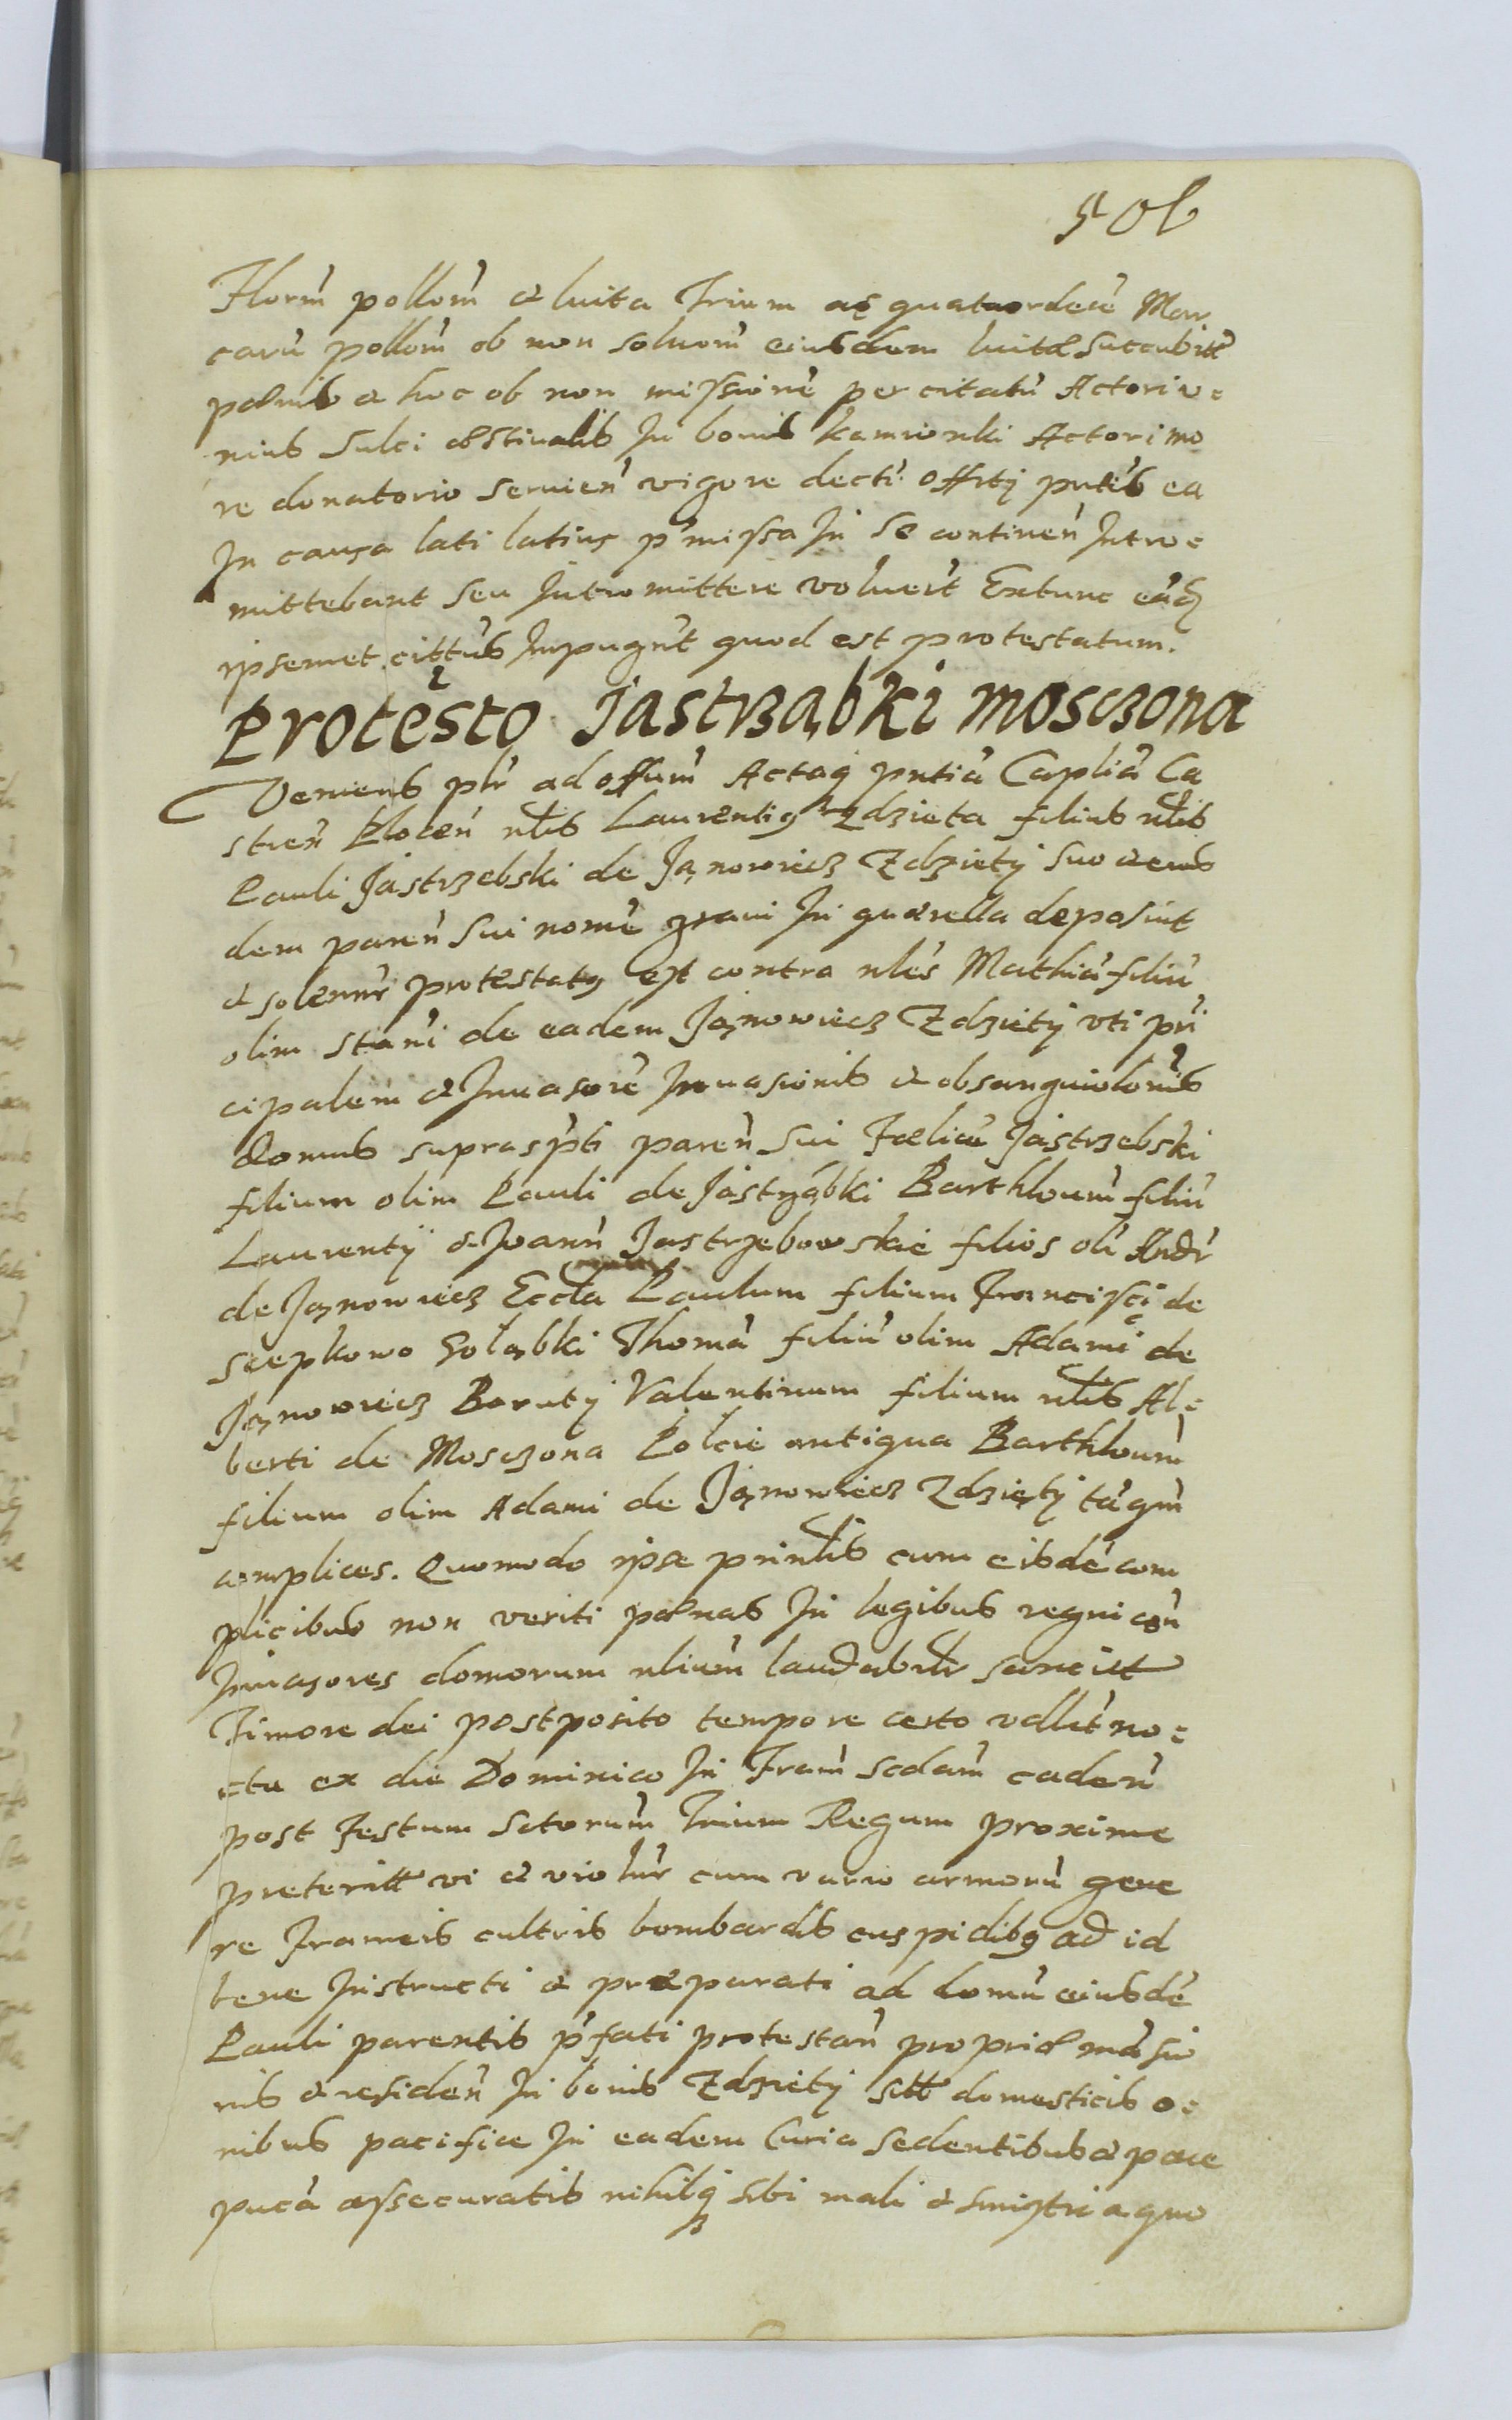 506
Florm̃ pollom̃ et luita Trium ac quatuordecẽ Mar
carũ pollom̃ ob non soluom̃ eiusdem luitæ succubitæ
pænis et hoc ob non missionẽ per citatũ Actori v=
nius sulci æstiualis In bonis Kamionki Actori mo
re donatorio seruien̄ vigore decti Offity p̃ntis ea
In causa lati latius p̃missa In se continen̄ Intro=
mittebant seu Intromittere voluer̃t Extunc eãdẽ
ipsemet cittus Impugn̄t quod est protestatum.
Protesto Jastrząbki mosczona
Veniens pl̃r ad offum̃ Actaq p̃ntiã Caplia Ca
stren̄ Plocen̄ nl̃is Laurentig Zdzieta filius nl̃is
Pauli Jastrzebski de Janowiecz Zdziety suo et eius
dem paren̄ sui nomẽ graui In quærella deposuit
et solenr̃ protestatg est contra nl̃es Mathiã filiũ
olim stani de eadem Janowiecz Zdziety vti prĩ
cipalem et Inuasorẽ Inuasionis et obsanguiolonis
domus supraspti paren̄ sui Fælicẽ Jastrzebski
filium olim Pauli de Jastrząbki Barthloum̃ filiũ
Laurentÿ et Joann̄ Jastrzebowskie filios oli Andr̃
de Janowiecz Eccla Paulum filium Francisci de
scepkowo Gołąbki Thomã filiũ olim Adami de
Janowiecz Boruty Valentinum filium nl̃is Al=
berti de Mosczona Polcie antiqua Barthloum̃
filium olim Adami de Janowiecz Zdzięty tãqm̃
complices. Quomodo ipse prinl̃is cum eisdẽ com
plicibus non veriti pænas In legibus regni con̄
Inuasores domorum nlium̃ laudabilr̃ sancitt
Timore dei postposito tempore certo vdlit̃ no=
ctu ex die Dominico In Fram̃ scdam̃ caden̄
post Festum sctorum̃ Trium Regum proxime
preteritt vi et violnr̃ cum vario armorũ gene
re Frameis cultris bombardis cuspidibg ad id
bene Instructi et præparati ad domũ eiusdẽ
Pauli parentis p̃fati protestan̄ propriæ mãsio
nis et residen̄ In bonis Zdziety sitt domesticis o=
nibus pacifice In eadem Curia sedentibus et pace
pucã assecuratis nihilq sibi mali et sinistri a quo